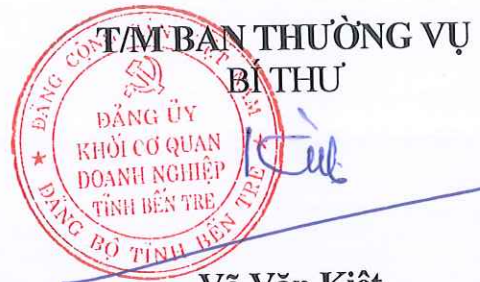 T/M BAN THƯỜNG VỤ
BÍ THƯ
ĐẢNG CỘNG SẢN VIỆT NAM
ĐẢNG ỦY
KHỐI CƠ QUAN
DOANH NGHIỆP
TỈNH BẾN TRE
ĐẢNG BỘ TỈNH BẾN TRE
Võ Văn Kiệt